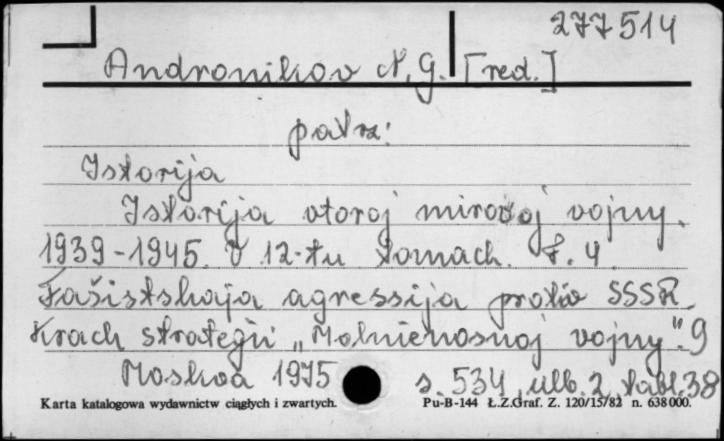 277514
Andronikov N.G. [red.]
patrz:
Istorija
Istorija vtoroj mirovoj vojny.
1939-1945. V 12-tu tomach. T. 4.
Fašistskaja agressija protiv SSSR.
Krach strategii „Molnienosnoj vojny". 9
Moskva 1975 s. 534, ulb. 2, tabl. 38
Karta katalogowa wydawnictw ciągłych i zwartych. Pu-B-144 Ł.Z.Graf. Z. 120/15/82 n. 638000.